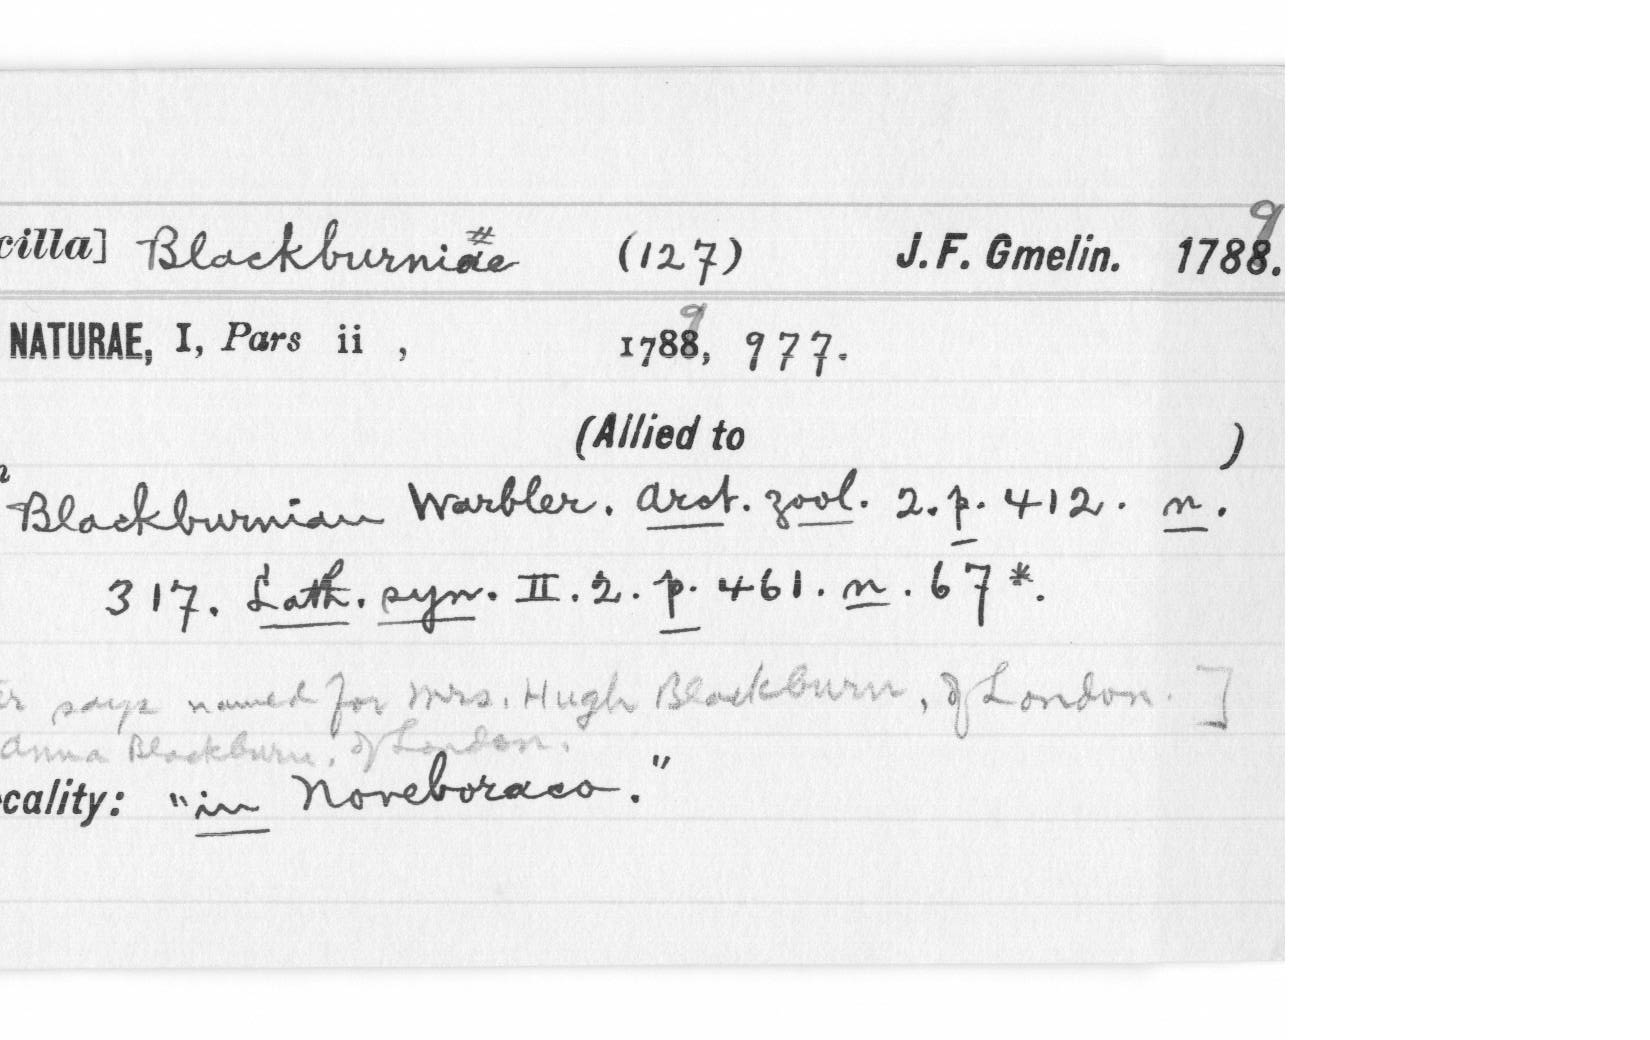 cilla] Blackburniae # (127) J. F. Gmelin. 1788. 9
NATURAE, I, Pars ii , 1788, 9 977.
(Allied to )
Blackburnian Warbler. Arct. zool. 2. p. 412. n.
317. Lath. syn. II. 2. p. 461. n. 67*.
says named for Mrs. Hugh Blackburn, of London.]
Anna Blackburn, of London.
cality: "in Noveboraco."